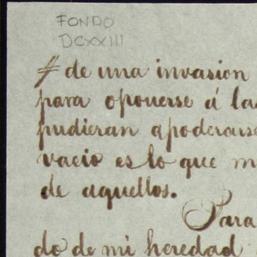 FONDO
DCXXIII
# de una invasion
para oponerse á la
pudieran apoderarse
vacio es lo que m
de aquellos.
Para
do de mi heredad